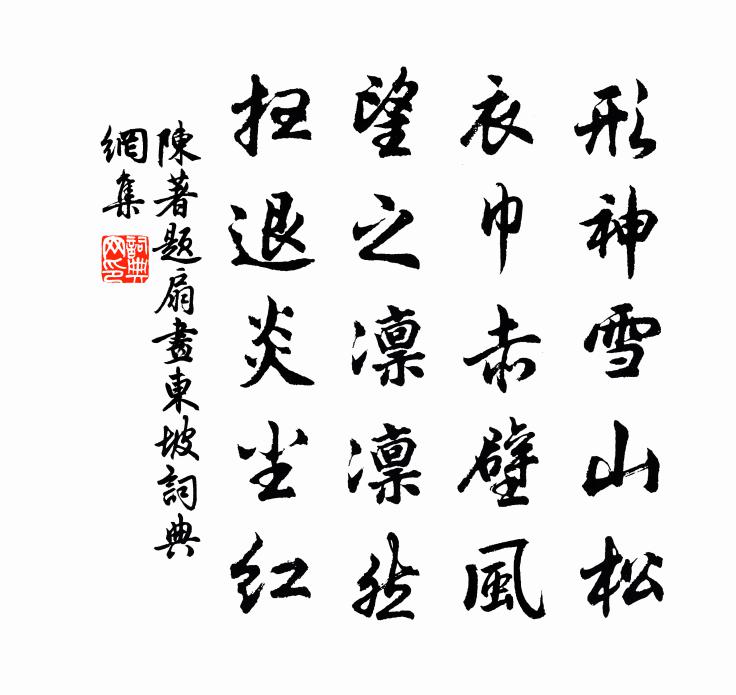 形神雪山松
衣巾赤壁風
望之凛凛然
扫退炎尘红
陳著題扇畫東坡詞典
網集
詞典
网印